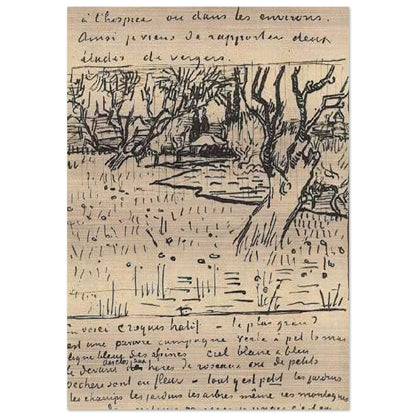 à l'hospice ou dans les environs.
Ainsi je viens de rapporter deux
études de vergers.
En voici croquis hatif – le plus grand
est une pauvre campagne verte à petits mas
ligne bleue des Alpines ciel blanc & bleu
Le devant des haies de roseaux ou de petits
pechers sont en fleur – tout y est petit les jardins
les champs les jardins les arbres même ces montagnes